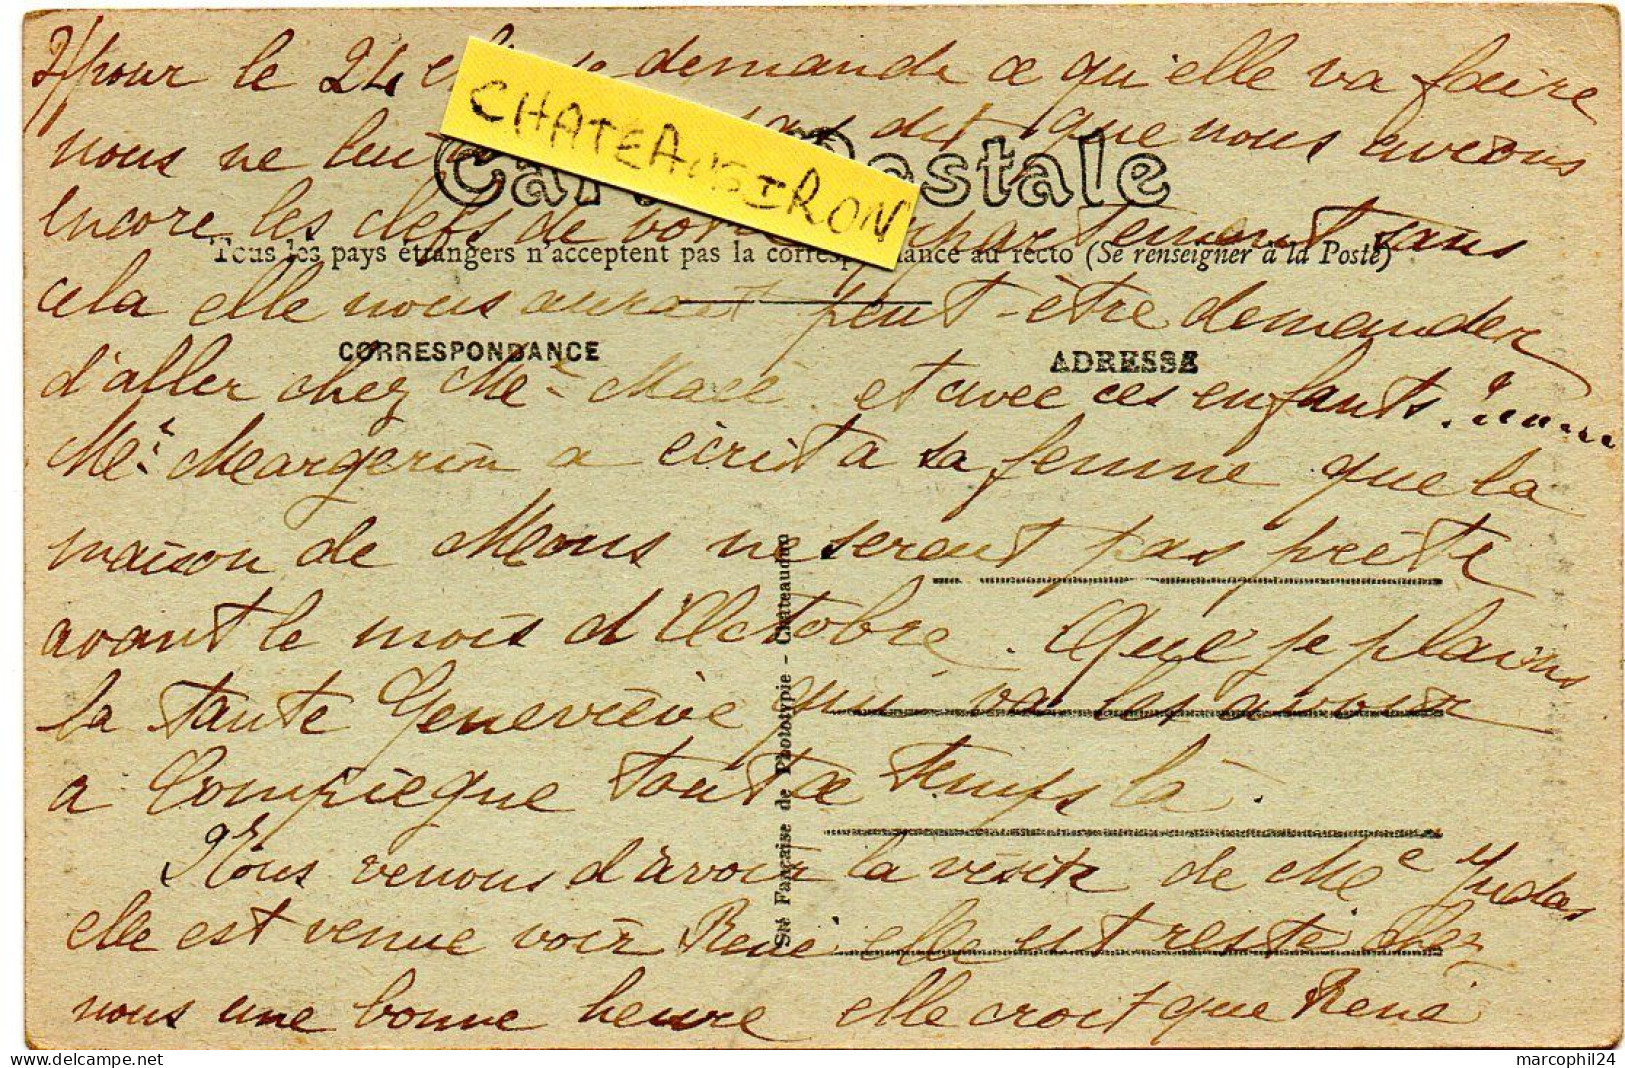 2/ pour le 24 elle se demande ce qu'elle va faire
CHATEAUGIRON
nous ne lui pas dit que nous avions
Carte Postale
encore les clefs de votre appartement sans
Tous les pays étrangers n'acceptent pas la correspondance au recto (Se renseigner à la Poste)
cela elle nous aurait peut-être demander
CORRESPONDANCE
ADRESSE
d'aller chez Me Macé et avec ces enfants.
Mr Margerin a écrit a sa femme que la
maison de Mons ne serent pas prête
avant le mois d'Octobre. Que je plains
la tante Geneviève qui va les avoir
a Compiegne tout ce temps là.
Nous venons d'avoir la visite de Me Judas
elle est venue voir René elle est resté chez
nous une bonne heure elle croit que René
Sté Française de Phototypie - Chateaudun
marcophil24